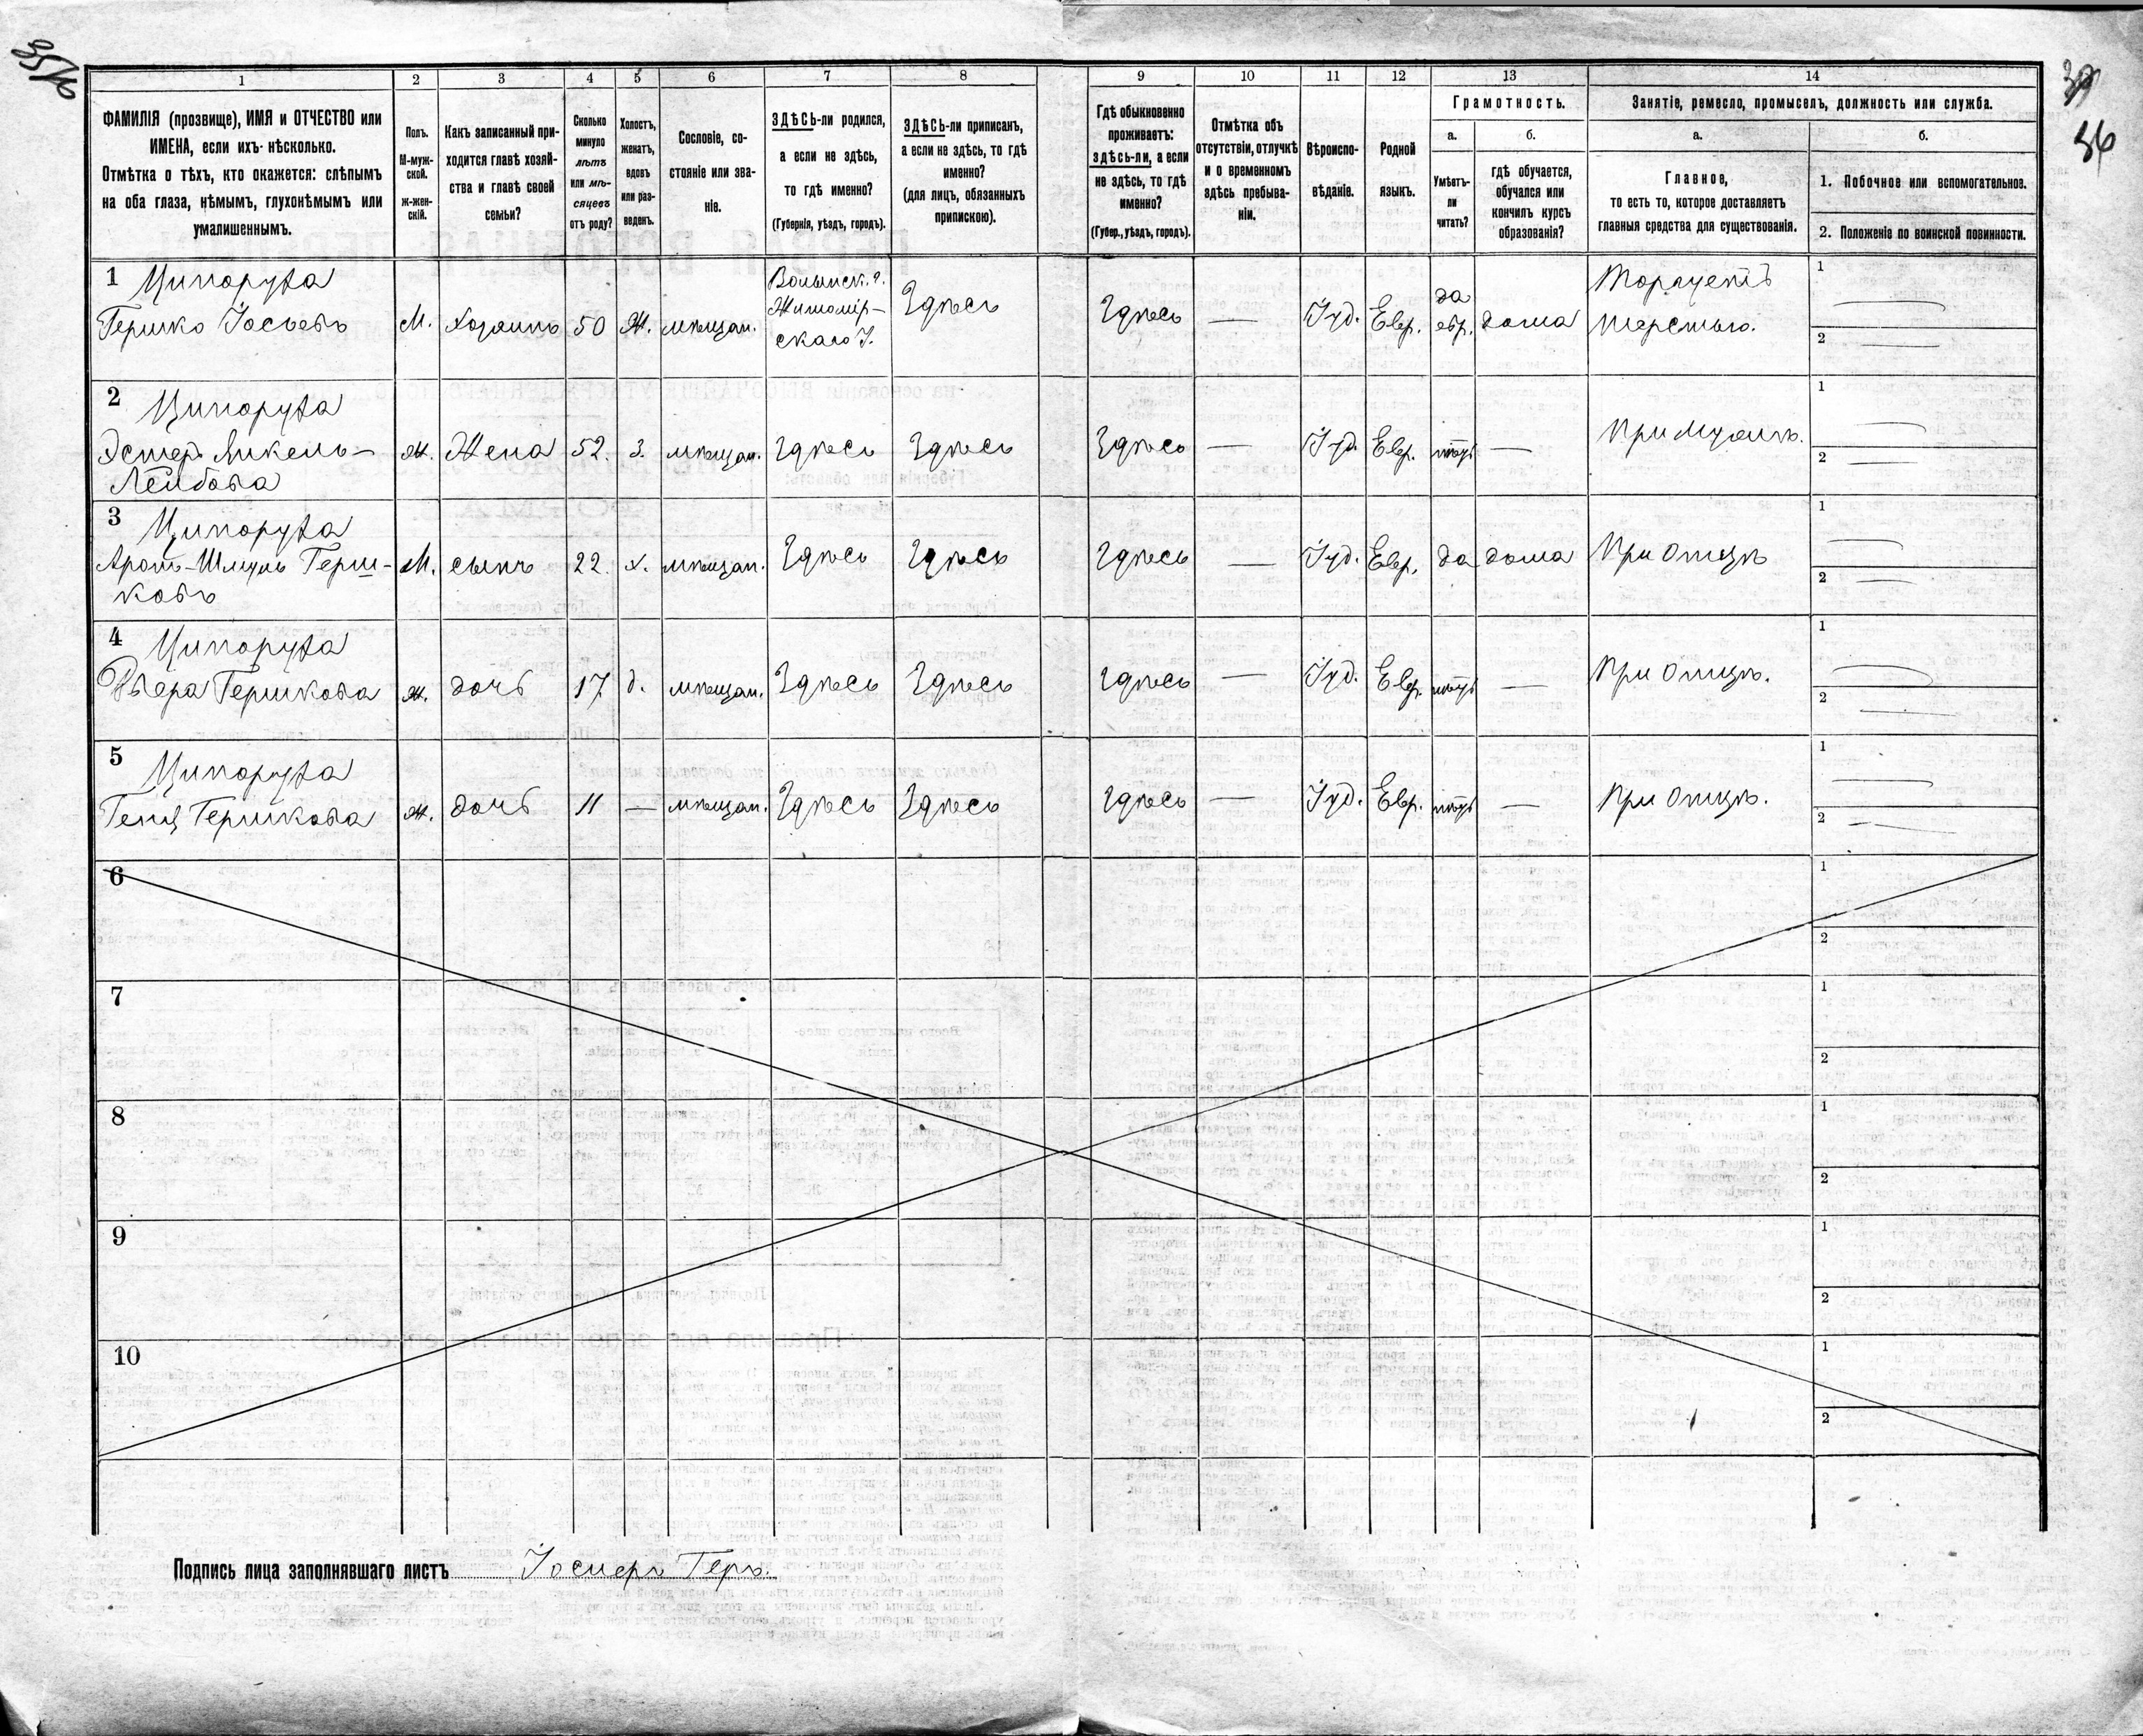 35/16
39
36
1
2
3
4
5
6
7
8
9
10
11
12
13
14
ФАМИЛІЯ (прозвище), ИМЯ и ОТЧЕСТВО или
ИМЕНА, если ихъ нѣсколько.
Отмѣтка о тѣхъ, кто окажется: слѣпымъ
на оба глаза, нѣмымъ, глухонѣмымъ или
умалишеннымъ.
Полъ.
М-муж-
ской.
ж-жен-
скій.
Какъ записанный при-
ходится главѣ хозяй-
ства и главѣ своей
семьи?
Сколько
минуло
лѣтъ
или мѣ-
сяцевъ
отъ роду?
Холостъ,
женатъ,
вдовъ
или раз-
веденъ.
Сословіе, со-
стояніе или зва-
ніе.
ЗДѢСЬ-ли родился,
а если не здѣсь,
то гдѣ именно?
(Губернія, уѣздъ, городъ).
ЗДѢСЬ-ли приписанъ,
а если не здѣсь, то гдѣ
именно?
(для лицъ, обязанныхъ
припискою).
Гдѣ обыкновенно
проживаетъ:
здѣсь-ли, а если
не здѣсь, то гдѣ
именно?
(Губер., уѣздъ, городъ).
Отмѣтка объ
отсутствіи, отлучкѣ
и о временномъ
здѣсь пребыва-
ніи.
Вѣроиспо-
вѣданіе.
Родной
языкъ.
Грамотность.
а.
Умѣетъ-
ли
читать?
б.
гдѣ обучается,
обучался или
кончилъ курсъ
образованія?
Занятіе, ремесло, промыселъ, должность или служба.
а.
Главное,
то есть то, которое доставляетъ
главныя средства для существованія.
б.
1. Побочное или вспомогательное.
2. Положеніе по воинской повинности.
1 Ципоруха
Гершко Іосьевъ
М.
хозяинъ
50
Ж.
мѣщан.
Волынск. г.
Житомір-
скаго У.
Здѣсь
Здѣсь
—
Іуд.
Евр.
да
евр.
дома
Торгуетъ
шерстью.
1 —
2 —
2 Ципоруха
Эстер Янкель-
Лейбова
ж.
Жена
52.
З.
мѣщан.
Здѣсь
Здѣсь
Здѣсь
—
Іуд.
Евр.
нѣтъ
—
При мужѣ.
1 —
2 —
3 Ципоруха
Аронъ-Шмуль Герш-
ковъ
М.
сынъ
22.
х.
мѣщан.
Здѣсь
Здѣсь
Здѣсь
—
Іуд.
Евр.
да
дома
При отцѣ
1 —
2 —
4 Ципоруха
Гершкова
ж.
дочь
17
д.
мѣщан.
Здѣсь
Здѣсь
Здѣсь
—
Іуд.
Евр.
нѣтъ
—
При отцѣ.
1 —
2 —
5 Ципоруха
Гершкова
ж.
дочь
11
—
мѣщан.
Здѣсь
Здѣсь
Здѣсь
—
Іуд.
Евр.
нѣтъ
—
При отцѣ.
1 —
2 —
6
1
2
7
1
2
8
1
2
9
1
2
10
1
2
Подпись лица заполнявшаго листъ